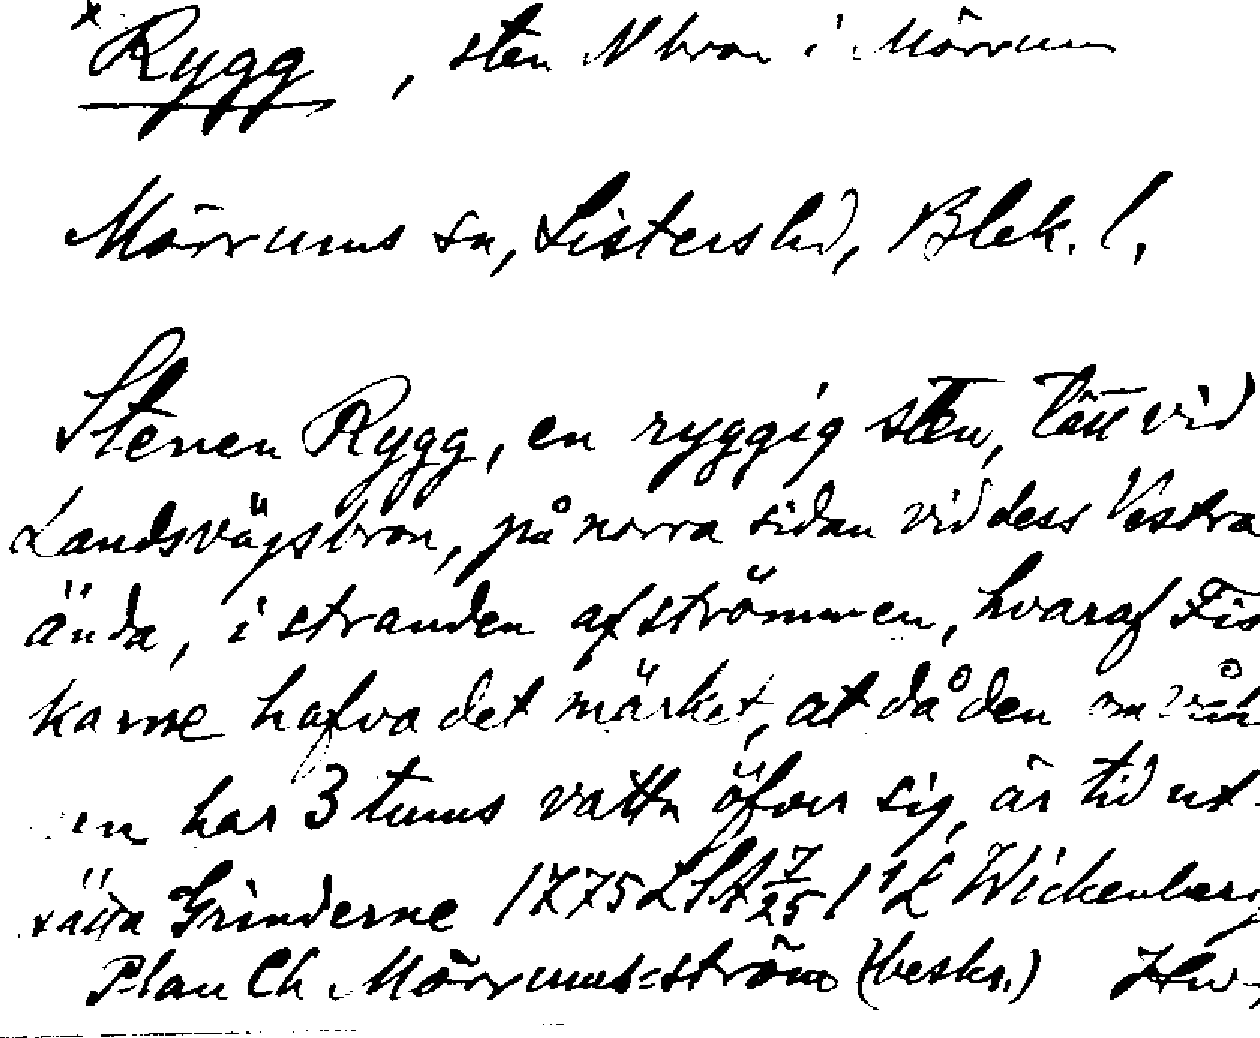 x Rygg, sten N bron i Mörrum
Mörrums sn, Listers hd, Blek. l.
Stenen Rygg, en ryggig sten, tätt vid
Landsvägsbron, på norra sidan vid dess Vestra
ända, i stranden af strömmen, hvaraf Fis
karne hafva det märket, at då den om vår
en har 3 tums vattn öfver sig, är tid ut-
sätta Grinderne 1775 LSA 7/25 1 L Wickenberg
Plan Ch Mörrums-ström (beskr.)